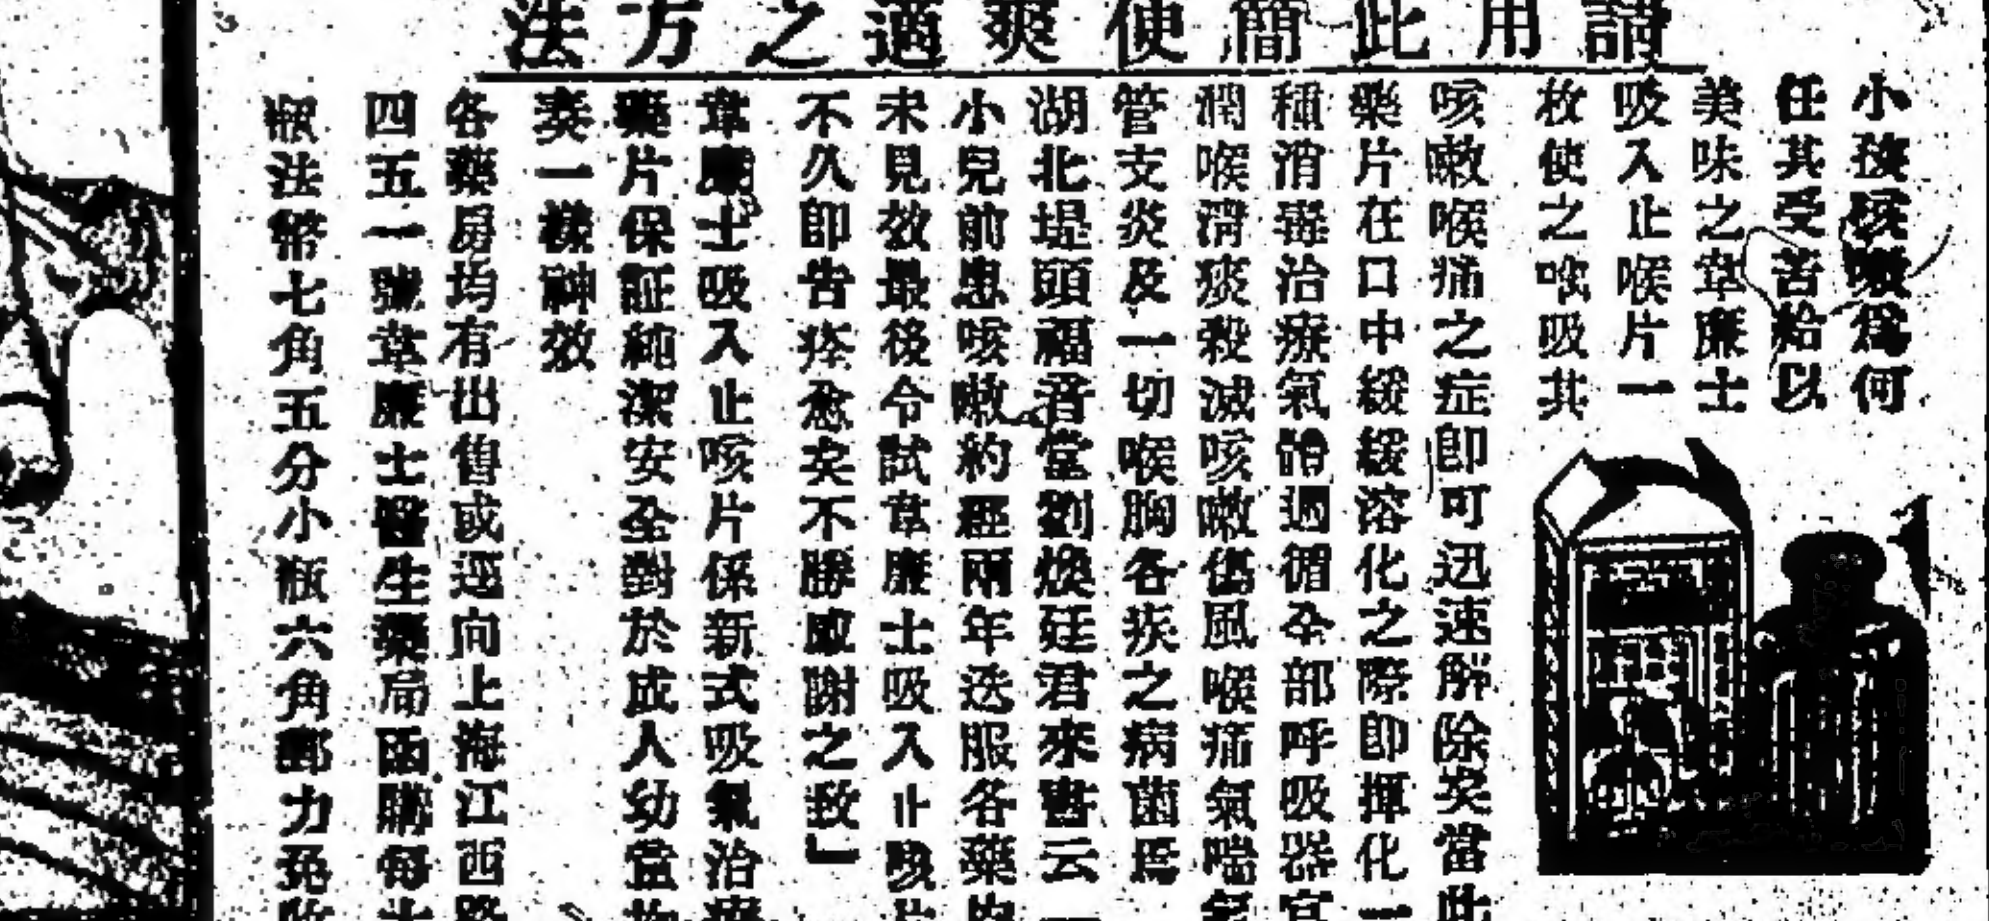 請用此簡便爽適之方法
小孩咳嗽爲何
任其受苦給以
美味之韋廉士
吸入止喉片一
枚使之吮吸其
咳嗽喉痛之症即可迅速解除矣當此
藥片在口中緩緩溶化之際即揮化一
種消毒治療氣體週徧全部呼吸器官
潤喉清痰殺滅咳嗽傷風喉痛氣喘氣
管支炎及一切喉胸各疾之病菌焉
湖北堤頭福音堂劉煥廷君來書云
小兒前患咳嗽約經兩年迭服各藥均
未見效最後令試韋廉士吸入止咳片
不久即告痊愈矣不勝感謝之致」
韋廉士吸入止咳片係新式吸氣治療
藥片保証純潔安全對於成人幼童均
奏一樣神效
各藥房均有出售或逕向上海江西路
四五一號韋廉士醫生藥局函購每大
瓶法幣七角五分小瓶六角郵力免收